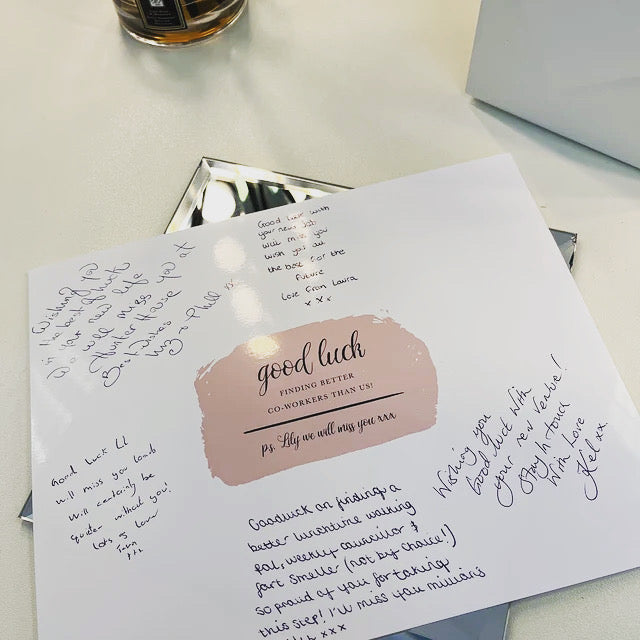 Good luck with
your new job
will miss you
wish you all
the best for the
future
Love from Laura
x x x
Wishing you
in the best of luck
in your new life
will miss you at
Hunter House
Best wishes
good luck
FINDING BETTER
CO-WORKERS THAN US!
ps. Lily we will miss you xxx
Good luck Lil
will miss you loads
will certainly be
quieter without you!
lots of love
Wishing you
Good luck with
your new venture!
Stay in touch
With Love
Kel xx
Goodluck on finding a
better lunchtime walking
pal, weekly councillor &
fart smeller (not by choice!)
so proud of you for taking
this step! I'll miss you millions
xxx